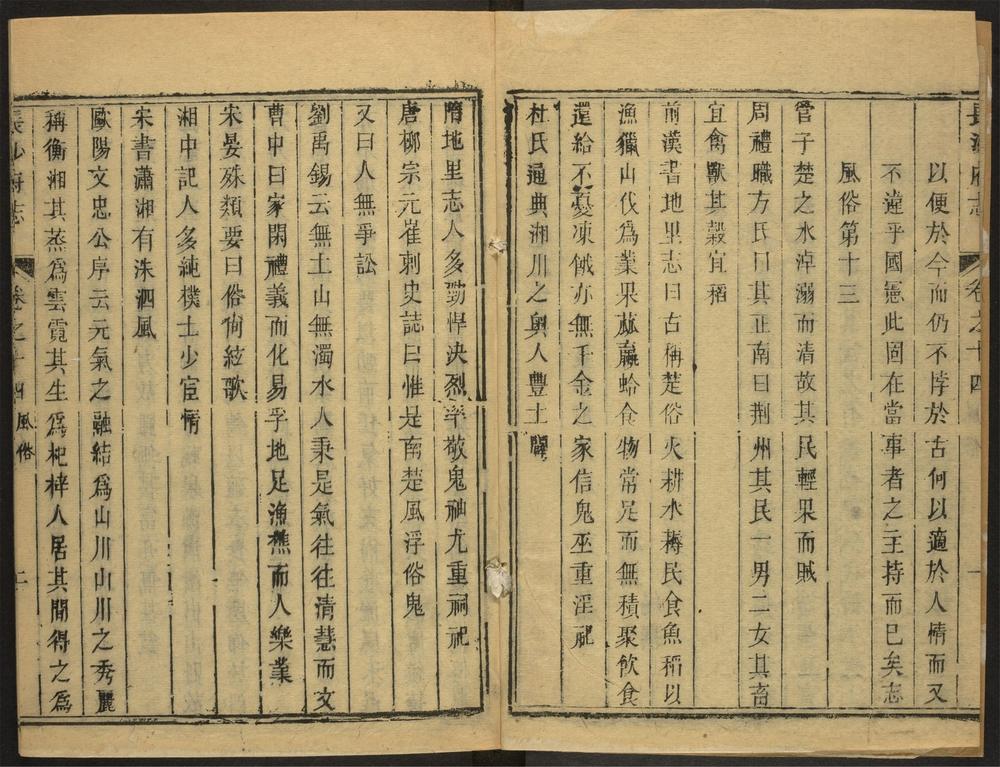 長沙府志 卷之十四 一
以便於今而仍不悖於古何以適於人情而又
不違乎國憲此固在當事者之主持而已矣志
風俗第十三
管子楚之水淖溺而清故其民輕果而賊
周禮職方氏曰其正南曰荆州其民一男二女其畜
宜禽獸其穀宜稻
前漢書地里志曰古稱楚俗火耕水耨民食魚稻以
漁獵山伐爲業果蓏蠃蛤食物常足而無積聚飲食
還給不憂凍餓亦無千金之家信鬼巫重淫祀
杜氏通典湘川之奥人豐土闢
隋地里志人多勁悍決烈率敬鬼神尤重祠祀
唐柳宗元崔刺史誌曰惟是南楚風浮俗鬼
又曰人無爭訟
劉禹錫云無土山無濁水人秉是氣往往清慧而文
曹中曰家閑禮義而化易孚地足漁樵而人樂業
宋晏殊類要曰俗尚絃歌
湘中記人多純樸士少宦情
宋書瀟湘有洙泗風
歐陽文忠公序云元氣之融結爲山川山川之秀麗
稱衡湘其蒸爲雲霓其生爲杞梓人居其間得之爲
長沙府志 卷之十四 風俗 二